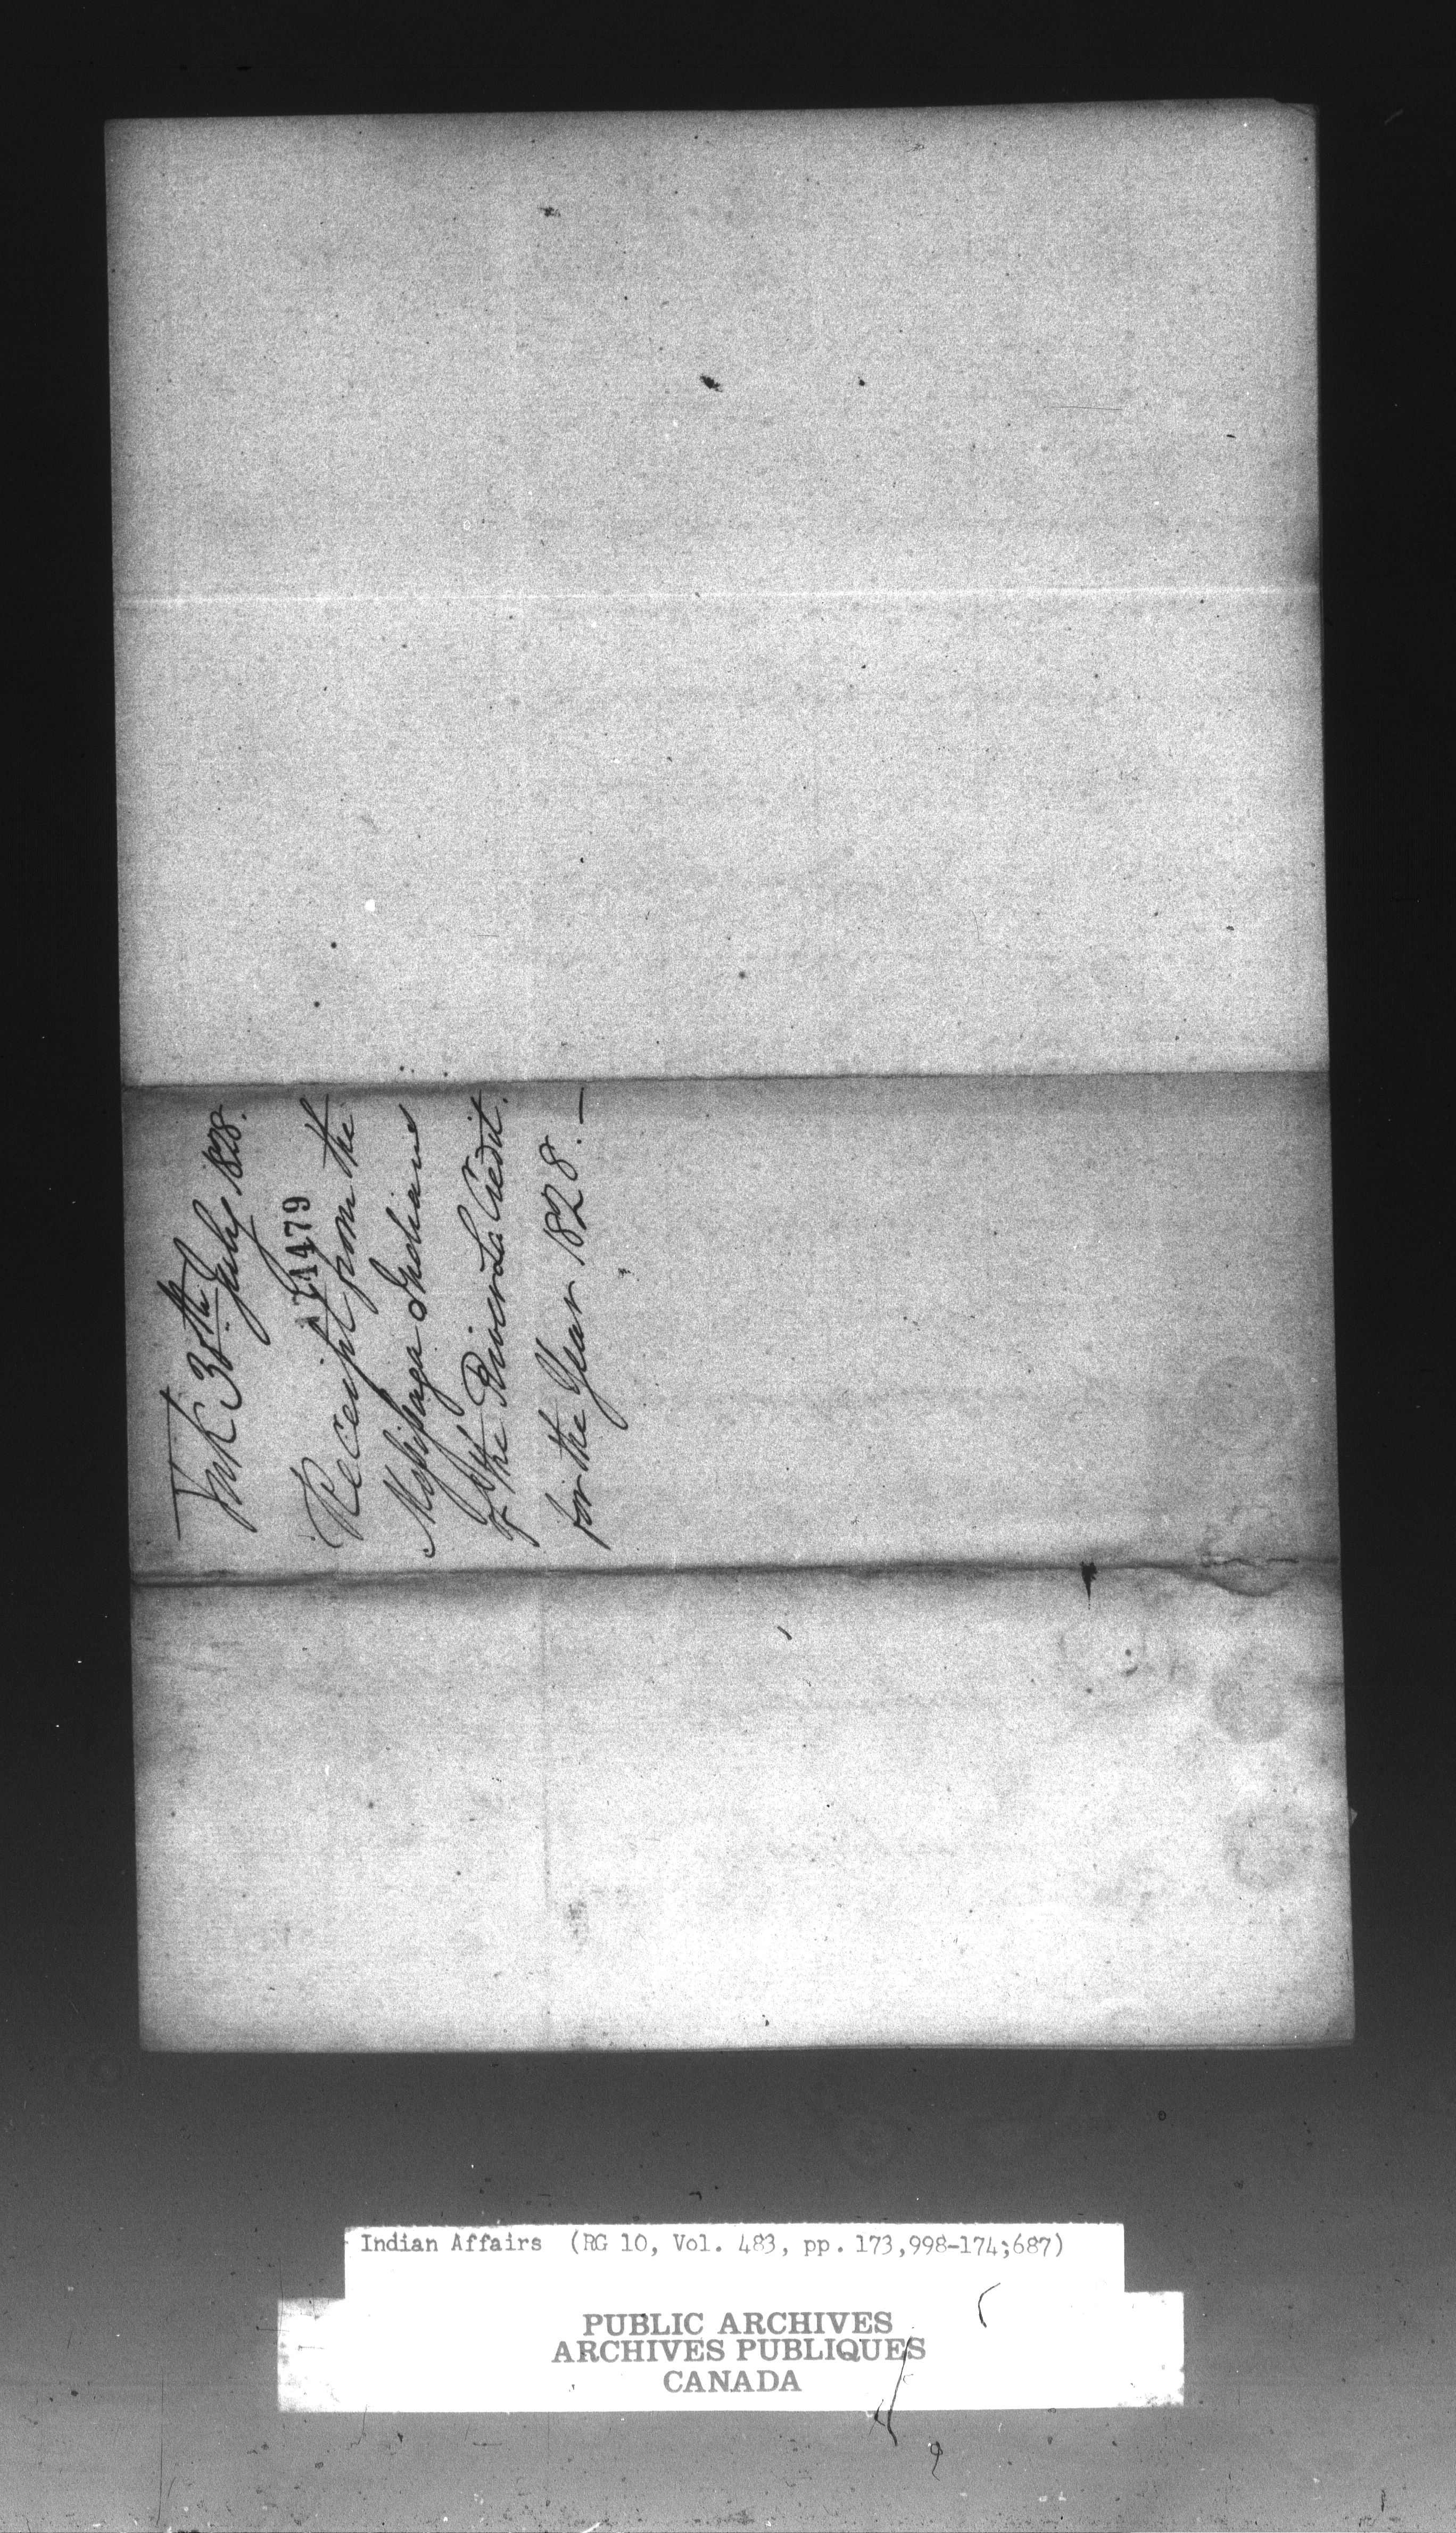 York 30th July 1828.
174479
Receipt from the
Missisaga Indians
of the River La Credit.
for the Year 1828. —
Indian Affairs (RG 10, Vol. 483, pp. 173,998-174;687)
PUBLIC ARCHIVES
ARCHIVES PUBLIQUES
CANADA